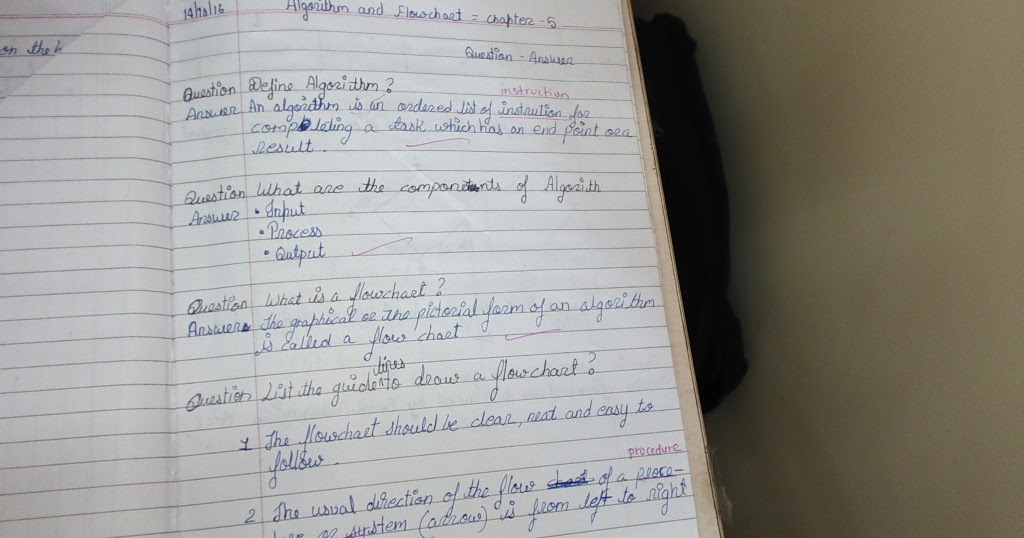 on the
14/10/16
Algorithm and Flowchart = chapter - 5
Question - Answer
Question Define Algorithm?
instruction
Answer An algorithm is an ordered list of instrution for
completing a task which has an end point or a
result.
Question What are the components of Algorith
Answer • Input
• Process
• Output
Question What is a flowchart?
Answer The graphical or the pictorial form of an algorithm
is called a flow chart
lines
Question List the guide to draw a flowchart?
1 The flowchart should be clear, neat and easy to
follow.
procedure
2 The usual direction of the flow chart of a proce-
or system (arrow) is from left to right